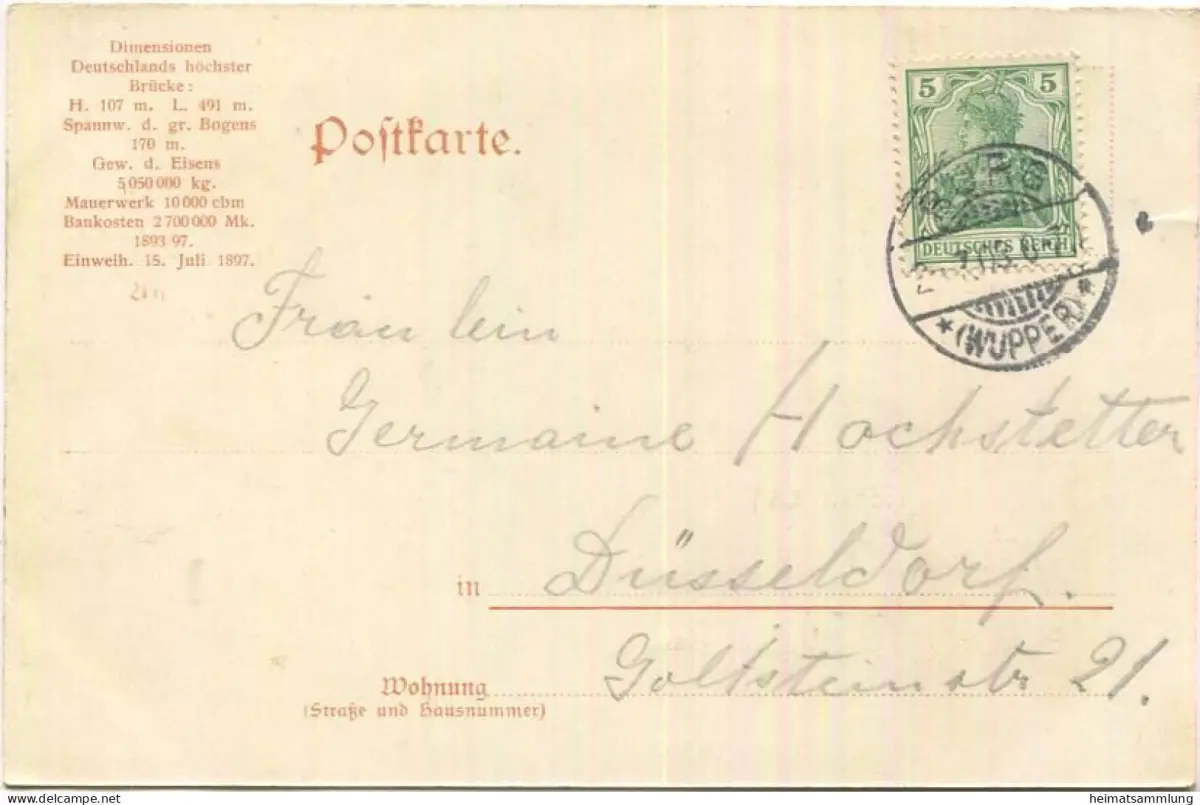 Dimensionen
Deutschlands höchster
Brücke:
H. 107 m. L. 491 m.
Spannw. d. gr. Bogens
170 m.
Gew. d. Eisens
5 050 000 kg.
Mauerwerk 10 000 cbm
Baukosten 2 700 000 Mk.
1893 97.
Einweih. 15. Juli 1897.
Poſtkarte.
5 5
DEUTSCHES REICH
BURG
*(WUPPER)*
Fräulein
Germaine Hochstetter
in Düsseldorf.
Wohnung Goltsteinstr 21.
(Straße und Hausnummer)
heimatsammlung